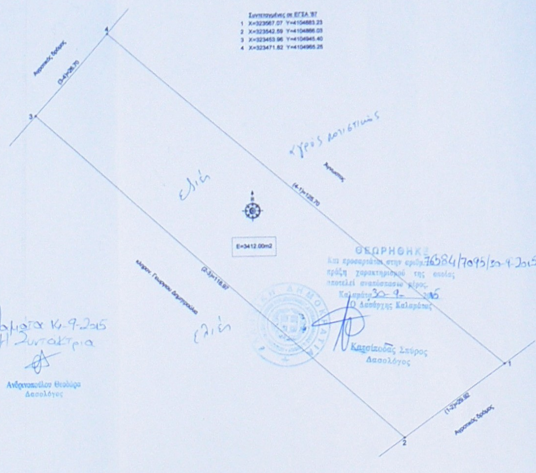 Συντεταγμένες σε ΕΓΣΑ '87
1 X=323567.07 Y=4104883.23
2 X=323542.59 Y=4104866.03
3 X=323453.96 Y=4104945.40
4 X=323471.82 Y=4104965.26
4
Αγροτικός δρόμος
(3-4)=26.70
3
αγρός ποτιστικός
Άγνωστος
(4-1)=125.70
ελιές
E=3412.00m2
κληρον. Γεωργίου Δημητρακάκη
(2-3)=118.97
ΘΕΩΡΗΘΗΚΕ
Και προσαρτάται στην αριθμ. 76384/7095/20-9-2005
πράξη χαρακτηρισμού της οποίας
αποτελεί αναπόσπαστο μέρος.
Καλαμάτα 30-9- 2005
Ο Δασάρχης Καλαμάτας
Σταύρος
Δασολόγος
ελιές
Καλαμάτα 14-9-2005
Η Συντάκτρια
Ανδριοπούλου Θεοδώρα
Δασολόγος
1
(1-2)=29.92
Αγροτικός δρόμος
2